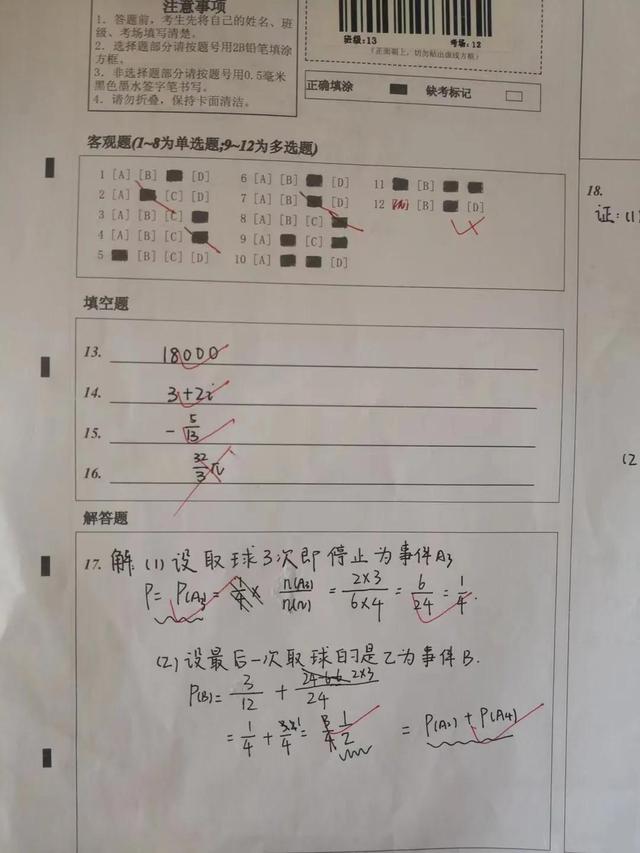 注意事项
1. 答题前,考生先将自己的姓名、班
级、考场填写清楚。
2. 选择题部分请按题号用2B铅笔填涂
方框。
3. 非选择题部分请按题号用0.5毫米
黑色墨水签字笔书写。
4. 请勿折叠,保持卡面清洁。
班级:13 考场:12
(正面朝上,切勿贴出虚线方框)
正确填涂 缺考标记
客观题(1~8为单选题;9~12为多选题)
1 [A] [B] [D] 6 [A] [B] [D] 11 [B]
2 [A] [C] [D] 7 [A] [B] [D] 12 [B] [D]
3 [A] [B] [C] 8 [A] [B] [C]
4 [A] [B] [C] 9 [A] [C]
5 [B] [C] [D] 10 [A] [D]
填空题
13. 18000
14. 3+2i
15. -5/13
16. 32/3 π
解答题
17. 解 (1) 设取球3次即停止为事件A3
P = P(A3) = = 2×3/6×4 = 6/24 = 1/4.
(2) 设最后一次取球的是乙为事件B.
P(B) = 3/12 + 2×3/24
= 1/4 + 1/4 = 1/2 = P(A2) + P(A4)
18.
证:(1)
(2